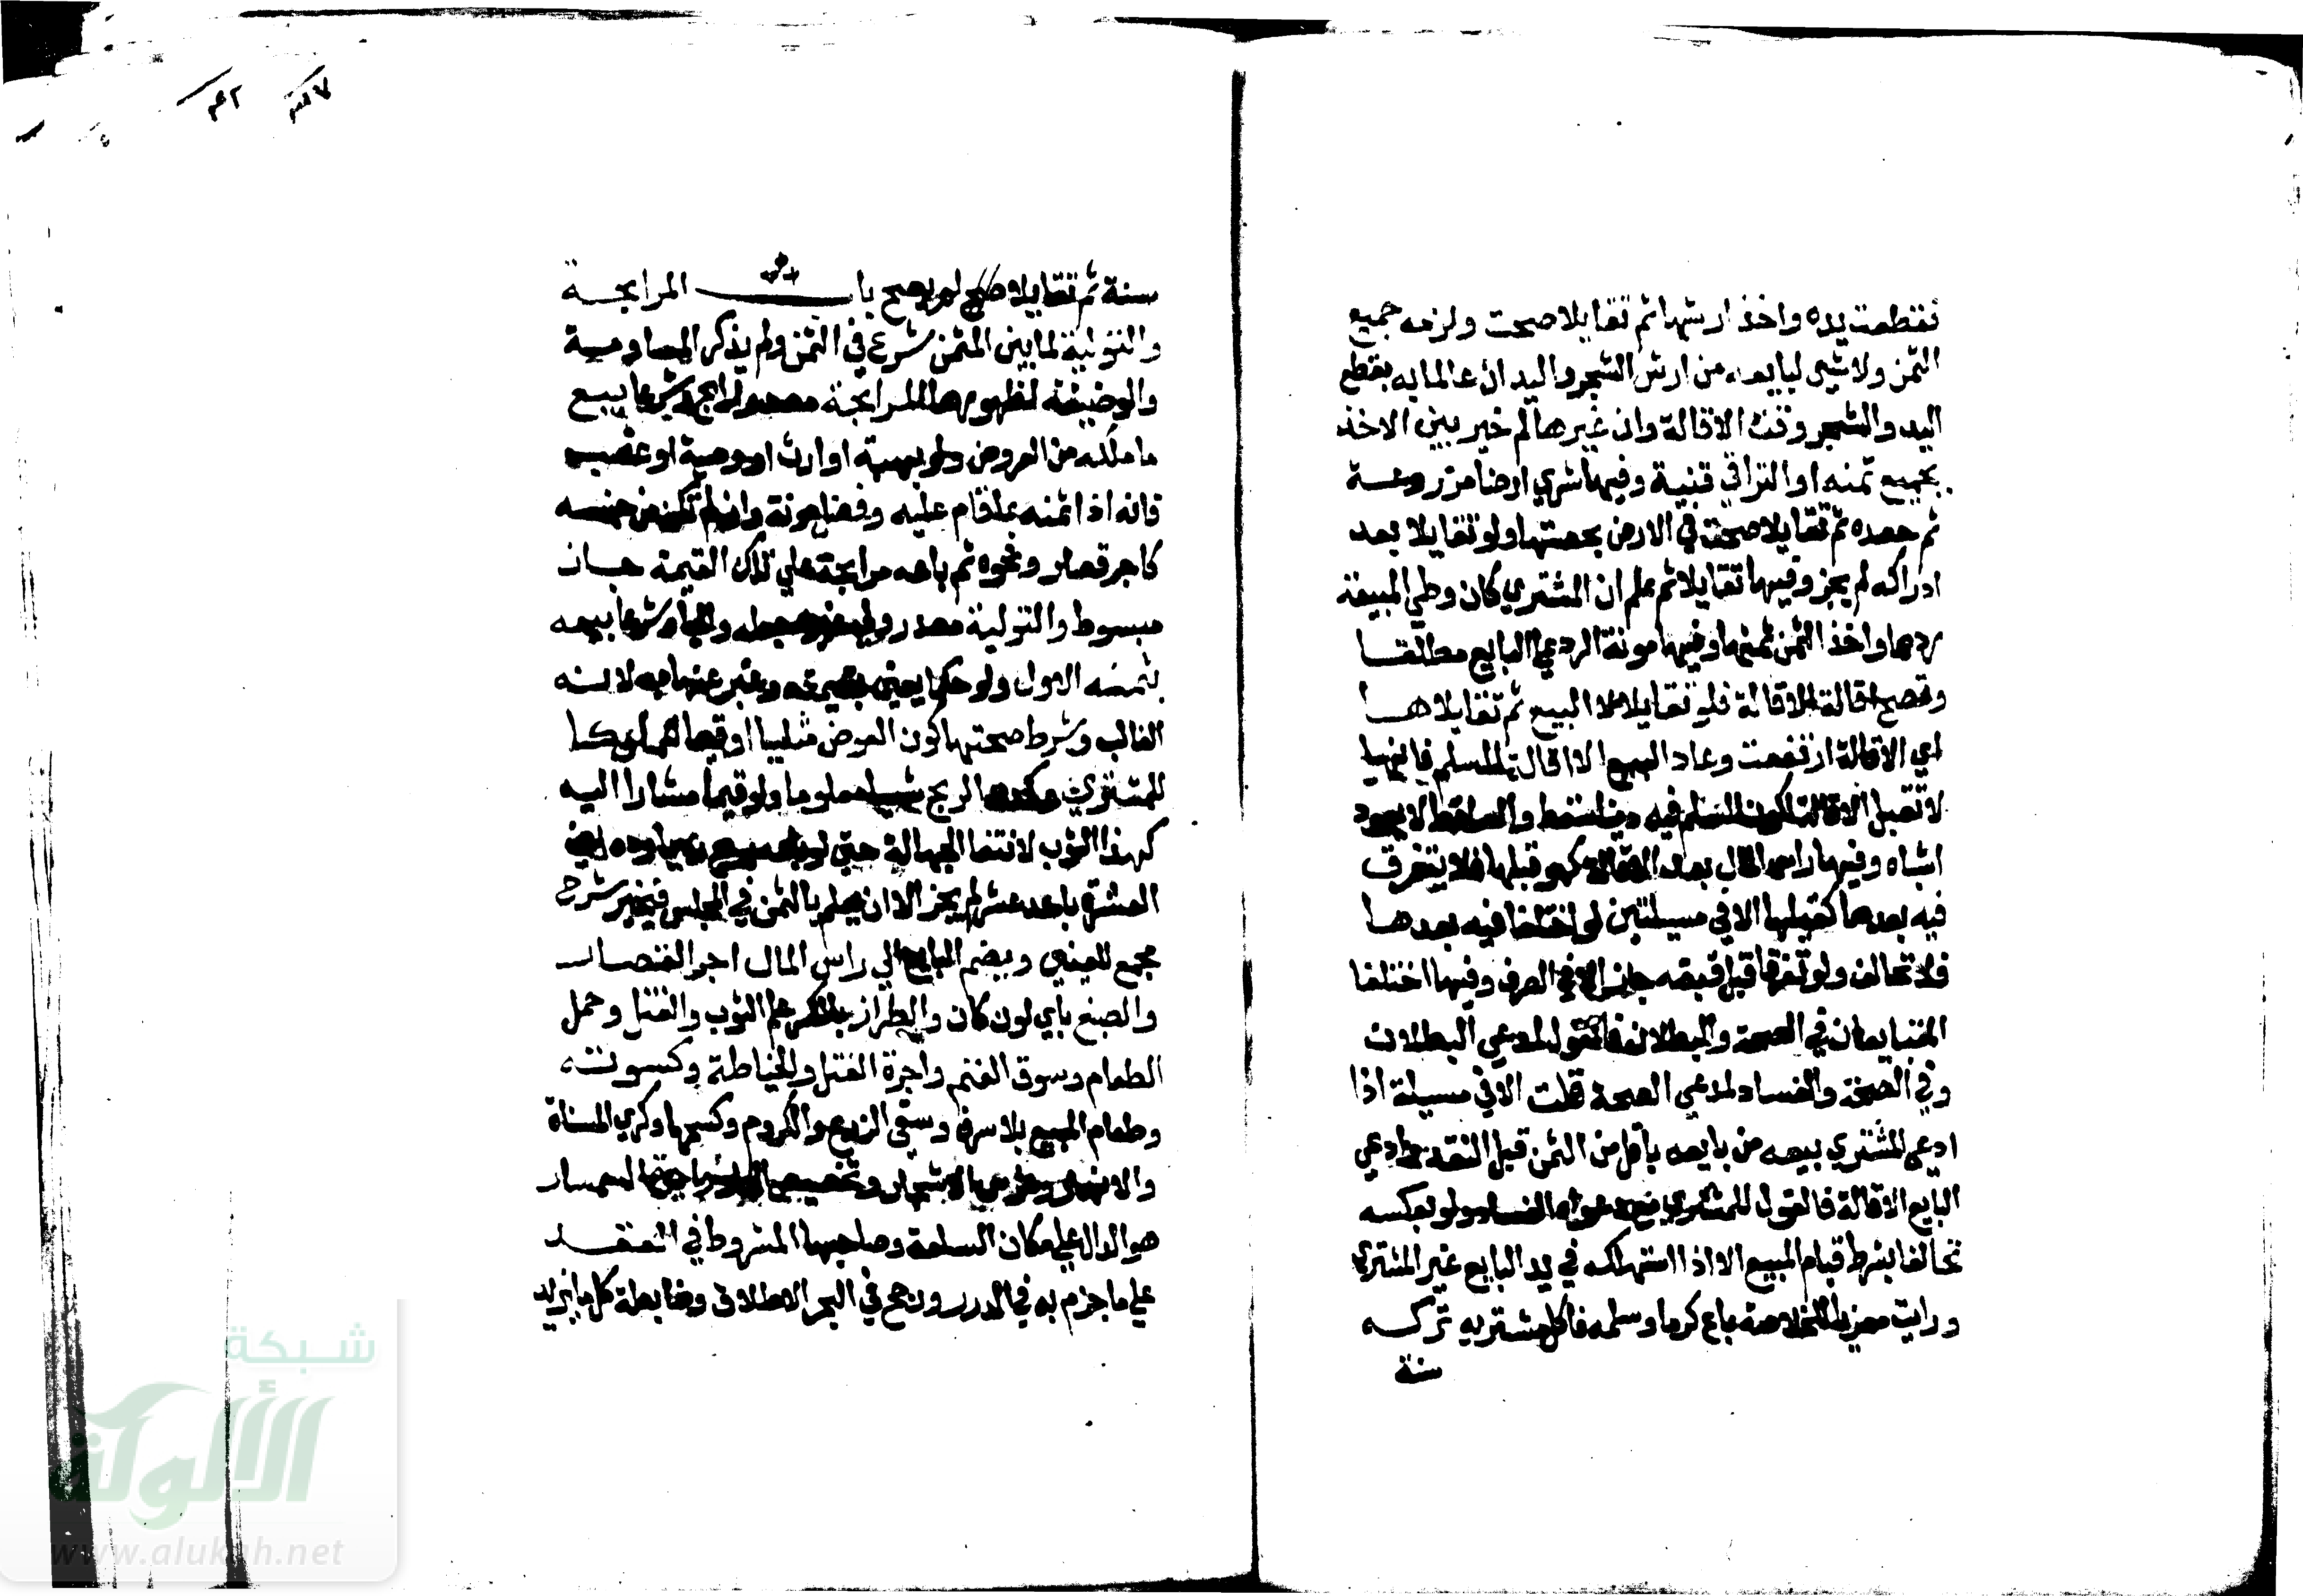 فقطعت يده واخذ ارشها ثم تقايلا صحت ولزمه جميع
الثمن ولا شيء لبايعه من ارش الشجر واليد ان عالما به بقطع
اليد والشجر وقت الاقالة وان غير عالم خير بين الاخذ
بجميع ثمنه او الترك قنية وفيها شري ارضا مزروعة
ثم حصده ثم تقايلا صحت في الارض بحصتها ولو تقايلا بعد
ادراكه لم يجز وفيها تقايلا ثم علم ان المشتري كان وطي المبيعة
ردها واخذ الثمن وفيها مونة الرد علي البايع مطلقا
وتصح اقالة الاقالة فلو تقايلا البيع ثم تقايلاها
اي الاقالة ارتفعت وعاد البيع الا اقالة السلم فانها
لا تقبل الاقالة لكون المسلم فيه دينا سقط والساقط لا يعود
اشباه وفيها راس المال بعد الاقالة كهو قبلها فلا يتصرف
فيه بعدها كقبلها الا في مسيلتين لو اختلفا فيه بعدها
فلا تحالف ولو تفرقا قبل قبضه جاز الا في الصرف وفيها اختلفا
المتبايعان في الصحة والبطلان فالقول لمدعي البطلان
وفي الصحة والفساد لمدعي الصحة قلت الا في مسيلة اذا
ادعي المشتري بيعه من بايعه باقل من الثمن قبل النقد وادعي
البايع الاقالة فالقول للمشتري مع دعواه الفساد ولو بعكسه
تحالفا بشرط قيام المبيع الا اذا استهلكه في يد البايع غير المشتري
ورايت معزيا للخلاصة باع كرما وسلمه فاكل مشتريه تركه
سنة
سنة ثم تقايلا لم يصح باب المرابحة
والتولية لما بين المثمن شرع في الثمن ولم يذكر المساومة
والوضيعة لظهورهما المرابحة مصدر رابح وشرعا بيع
ما ملكه من العروض ولو بهبة او ارث او وصية او غصب
فانه اذا ثمنه بما قام عليه وفضل مونة وان لم تكن من جنسه
كاجر قصار ونحوه ثم باعه مرابحة علي تلك القيمة جاز
مبسوط والتولية مصدر ولي غيره جعله واليا وشرعا بيعه
بثمنه الاول ولو حكما يعني بقيمته وعبر عنها به لانه
الغالب وشرط صحتها كون العوض مثليا او قيميا مملوكا
للمشتري وكون الربح شيا معلوما ولو قيميا مشارا اليه
كهذا الثوب لانتفا الجهالة حتي لو باعه بربح ده يازده اي
العشرة باحد عشر لم يجز الا ان يعلم بالثمن في المجلس فيخير شرح
مجمع للعيني ويضم البايع الي راس المال اجر القصار
والصبغ باي لون كان والطراز بالكسر علم الثوب والفتل وحمل
الطعام وسوق الغنم واجرة الغسل والخياطة وكسوته
وطعام المبيع بلا سرف وسقي الزرع والكروم وكسحها وكري المسناة
والانهار وغرس الاشجار وتجصيص الدار واجرة السمسار
هو الدال علي مكان السلعة وصاحبها المشروط في العقد
علي ما جزم به في الدرر ورجح في البحر الاطلاق وضابطه كل ما يزيد